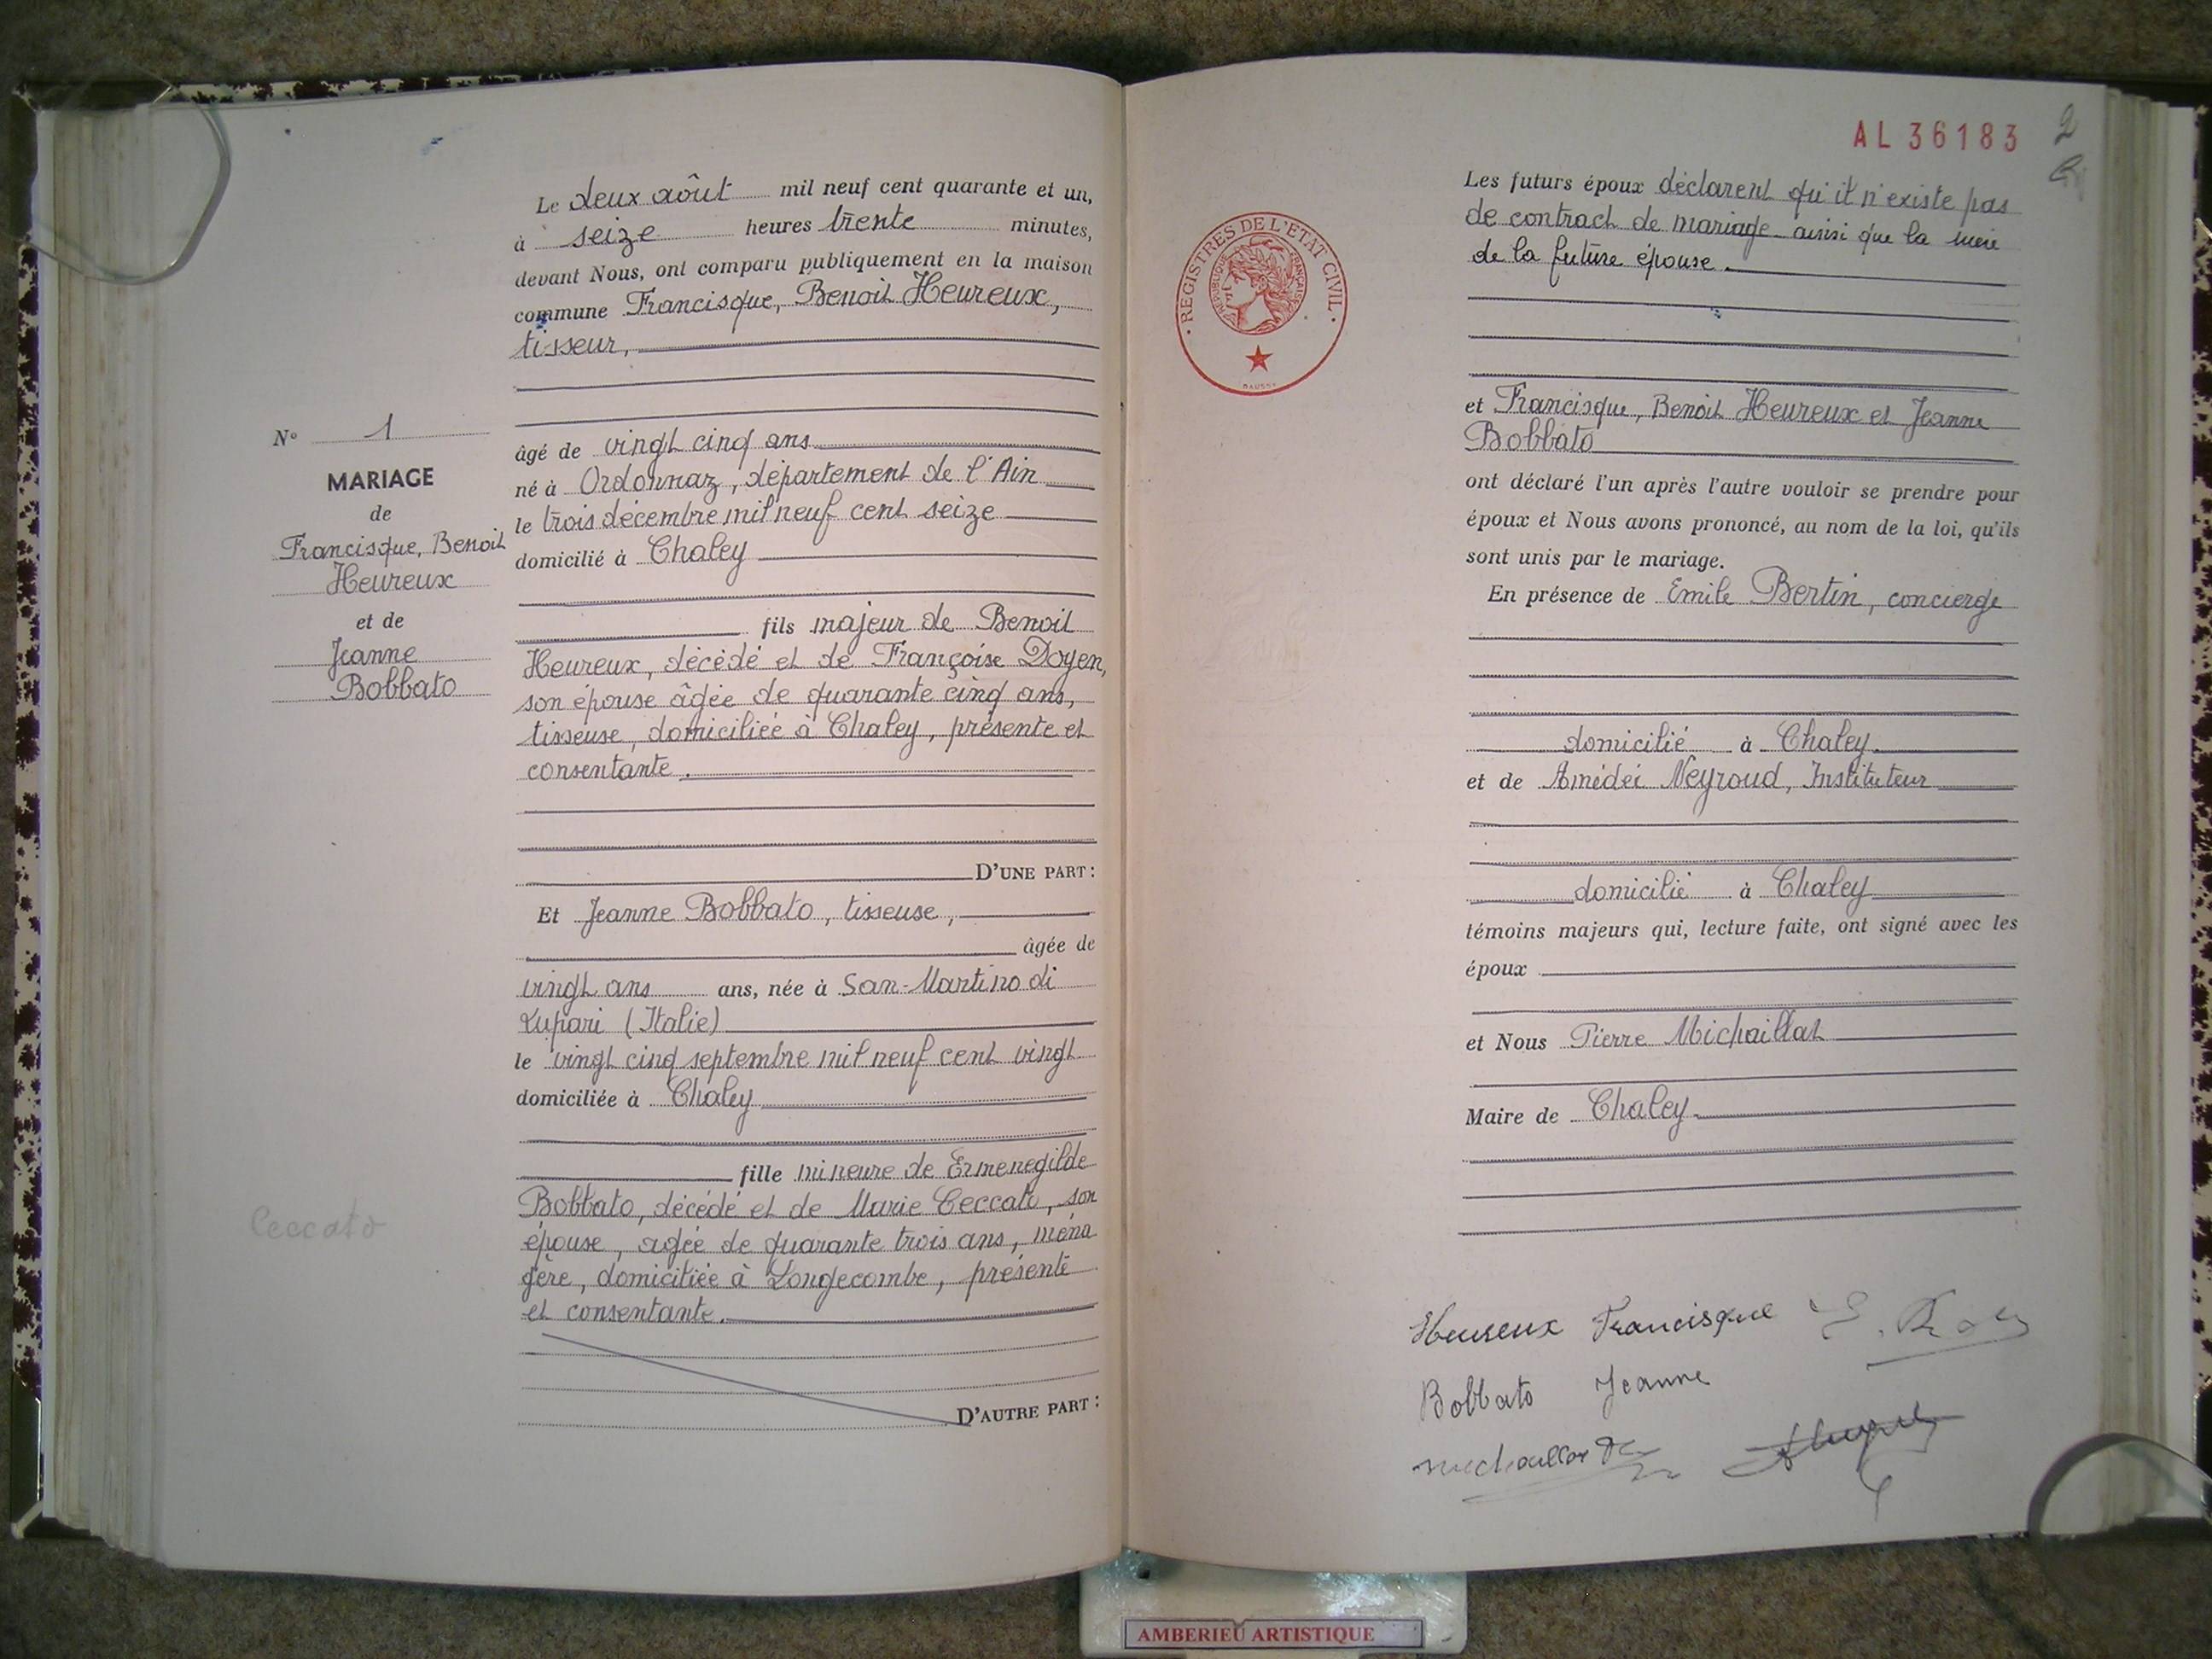 N° 1
MARIAGE
de
Francisque, Benoit
Heureux
et de
Jeanne
Bobbato
Ceccato
Le deux août mil neuf cent quarante et un,
à seize heures trente minutes,
devant Nous, ont comparu publiquement en la maison
commune Francisque, Benoit Heureux,
tisseur,
âgé de vingt cinq ans
né à Ordonnaz, département de l'Ain
le trois décembre mil neuf cent seize
domicilié à Chaley
fils majeur de Benoit
Heureux, décédé et de Françoise Doyen,
son épouse âgée de quarante cinq ans,
tisseuse, domiciliée à Chaley, présente et
consentante.
D'UNE PART :
Et Jeanne Bobbato, tisseuse,
âgée de
vingt ans ans, née à San-Martino di
Lupari (Italie)
le vingt cinq septembre mil neuf cent vingt
domiciliée à Chaley
fille mineure de Ermenegilde
Bobbato, décédé et de Marie Ceccato, son
épouse, agée de quarante trois ans, ména
gère, domiciliée à Longecombe, présente
et consentante.
D'AUTRE PART :
AL 36183
2
REGISTRES DE L'ETAT CIVIL
REPUBLIQUE FRANÇAISE
Les futurs époux déclarent qu'il n'existe pas
de contract de mariage ainsi que la mère
de la future épouse.
et Francisque, Benoit Heureux et Jeanne
Bobbato
ont déclaré l'un après l'autre vouloir se prendre pour
époux et Nous avons prononcé, au nom de la loi, qu'ils
sont unis par le mariage.
En présence de Emile Bertin, concierge
domicilié à Chaley.
et de Amédéi Neyroud, Instituteur
domicilié à Chaley
témoins majeurs qui, lecture faite, ont signé avec les
époux
et Nous Pierre Michaillat
Maire de Chaley
Heureux Francisque
Bobbato Jeanne
AMBERIEU ARTISTIQUE